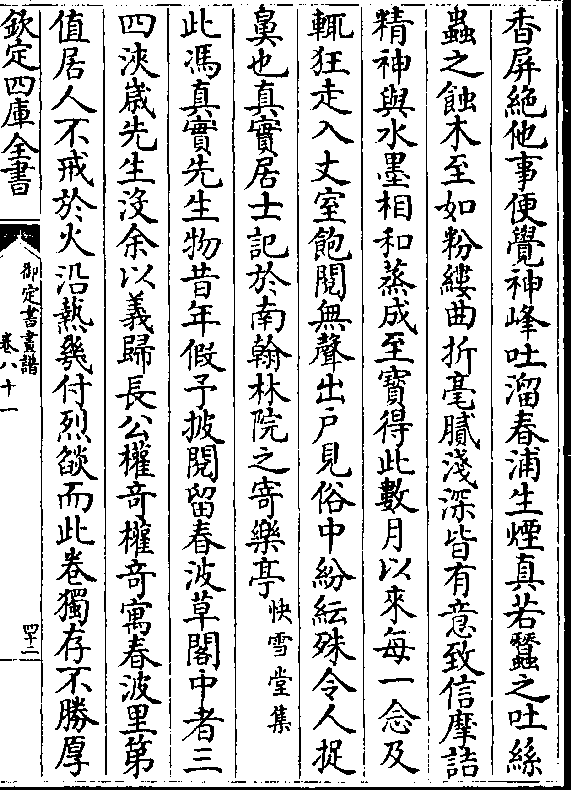 香屏絶他事便覺神峰吐溜春浦生煙真若蠶之吐絲
蟲之蝕木至如粉縷曲折毫膩淺深皆有意致信摩詰
精神與水墨相和蒸成至寶得此數月以來每一念及
輒狂走入丈室飽閱無聲出户見俗中紛紜殊令人捉
鼻也真實居士記於南翰林院之寄樂亭快雪堂集
此馮真實先生物昔年假予披閱留春波草閣中者三
四浹嵗先生没余以義歸長公權竒權竒寓春波里第
值居人不戒於火沿熱幾付烈燄而此卷獨存不勝厚
欽定四庫全書
御定書畫譜
卷八十一
四十二